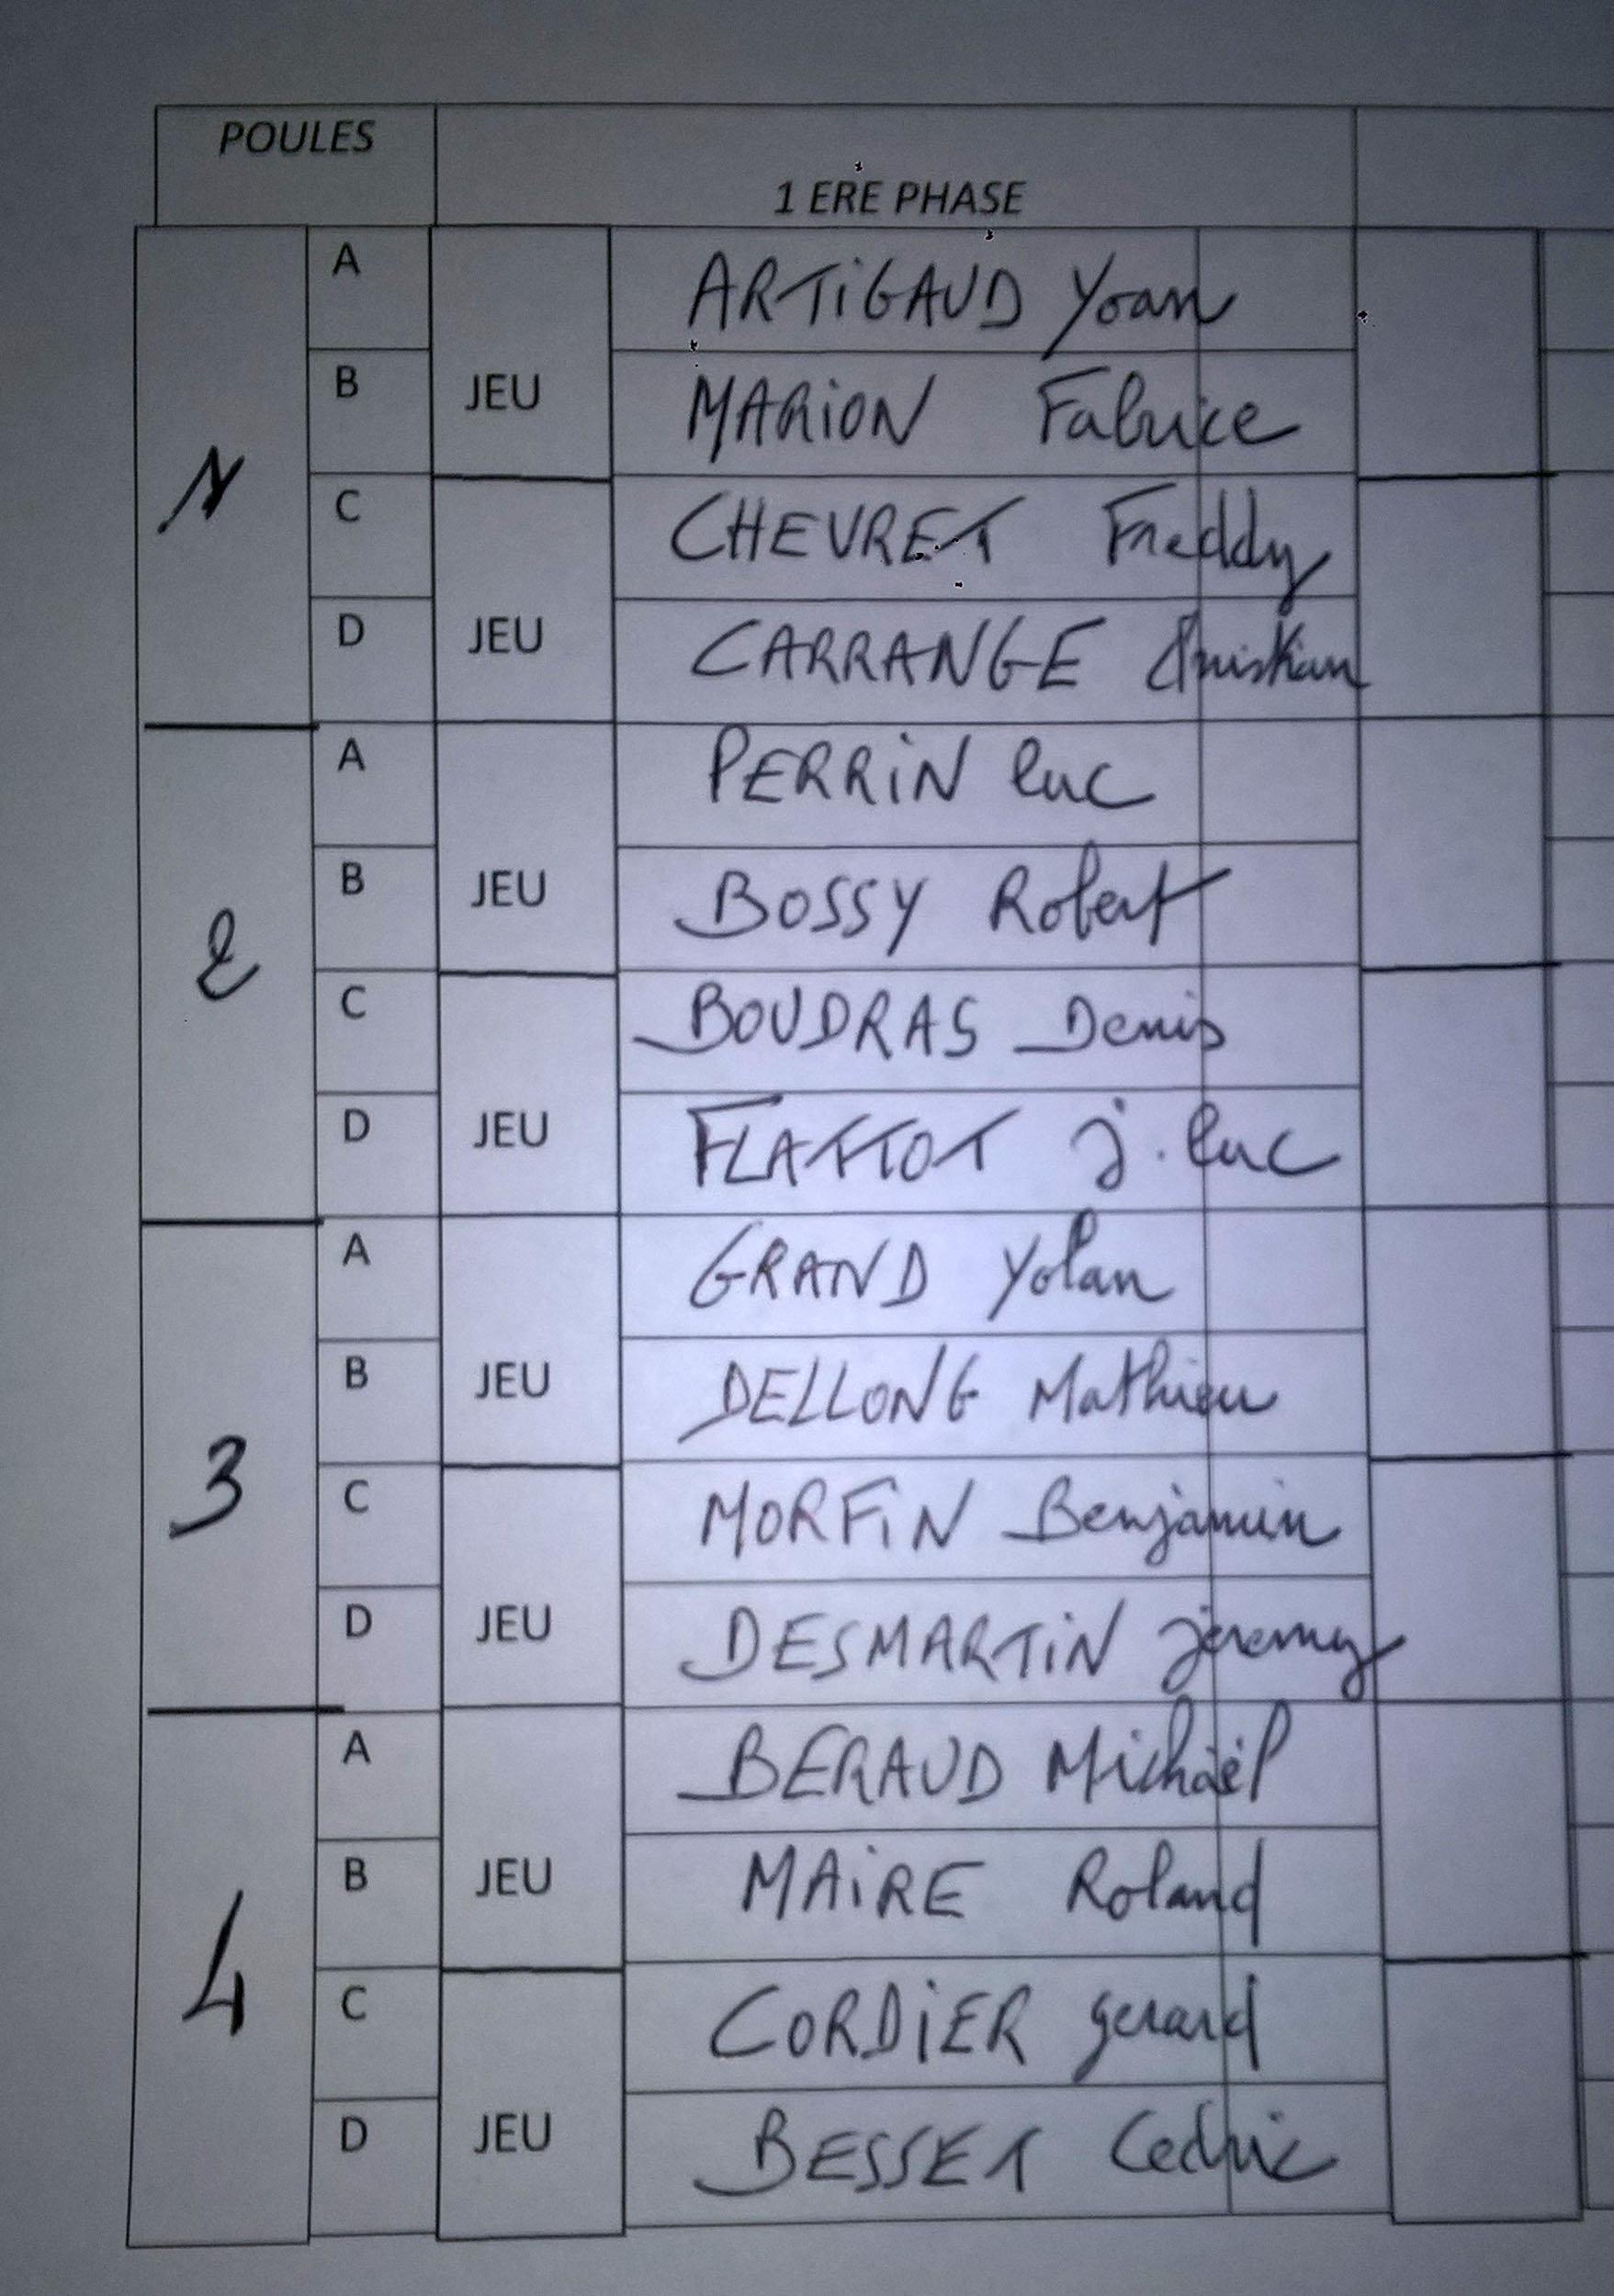 POULES
1 ERE PHASE
1
A ARTiGAUD Yoan
B JEU MARiON Fabrice
C CHEVRET Freddy
D JEU CARRANGE Christian
2
A PERRiN luc
B JEU BOSSY Robert
C BOUDRAS Denis
D JEU FLATTOT j. luc
3
A GRAND Yolan
B JEU DELLONG Mathieu
C MORFiN Benjamin
D JEU DESMARTiN jeremy
4
A BERAUD Michaël
B JEU MAiRE Roland
C CORDiER gerard
D JEU BESSET Cedric